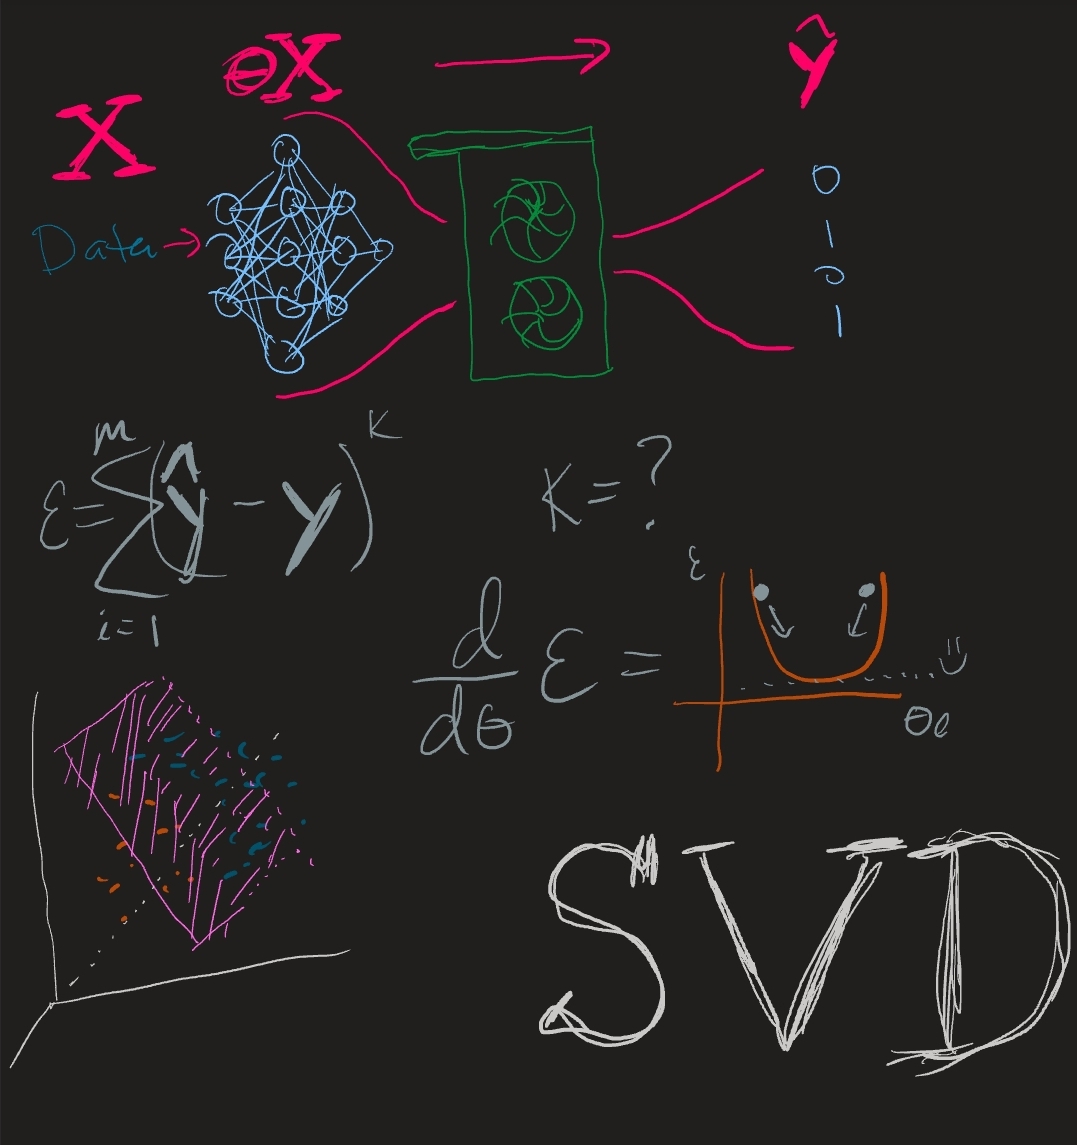 X θX → ŷ
Data →
0
1
0
1
ε = Σ_{i=1}^{m} (ŷ - y)^K
K = ?
d/dθ ε =
ε
θe
SVD